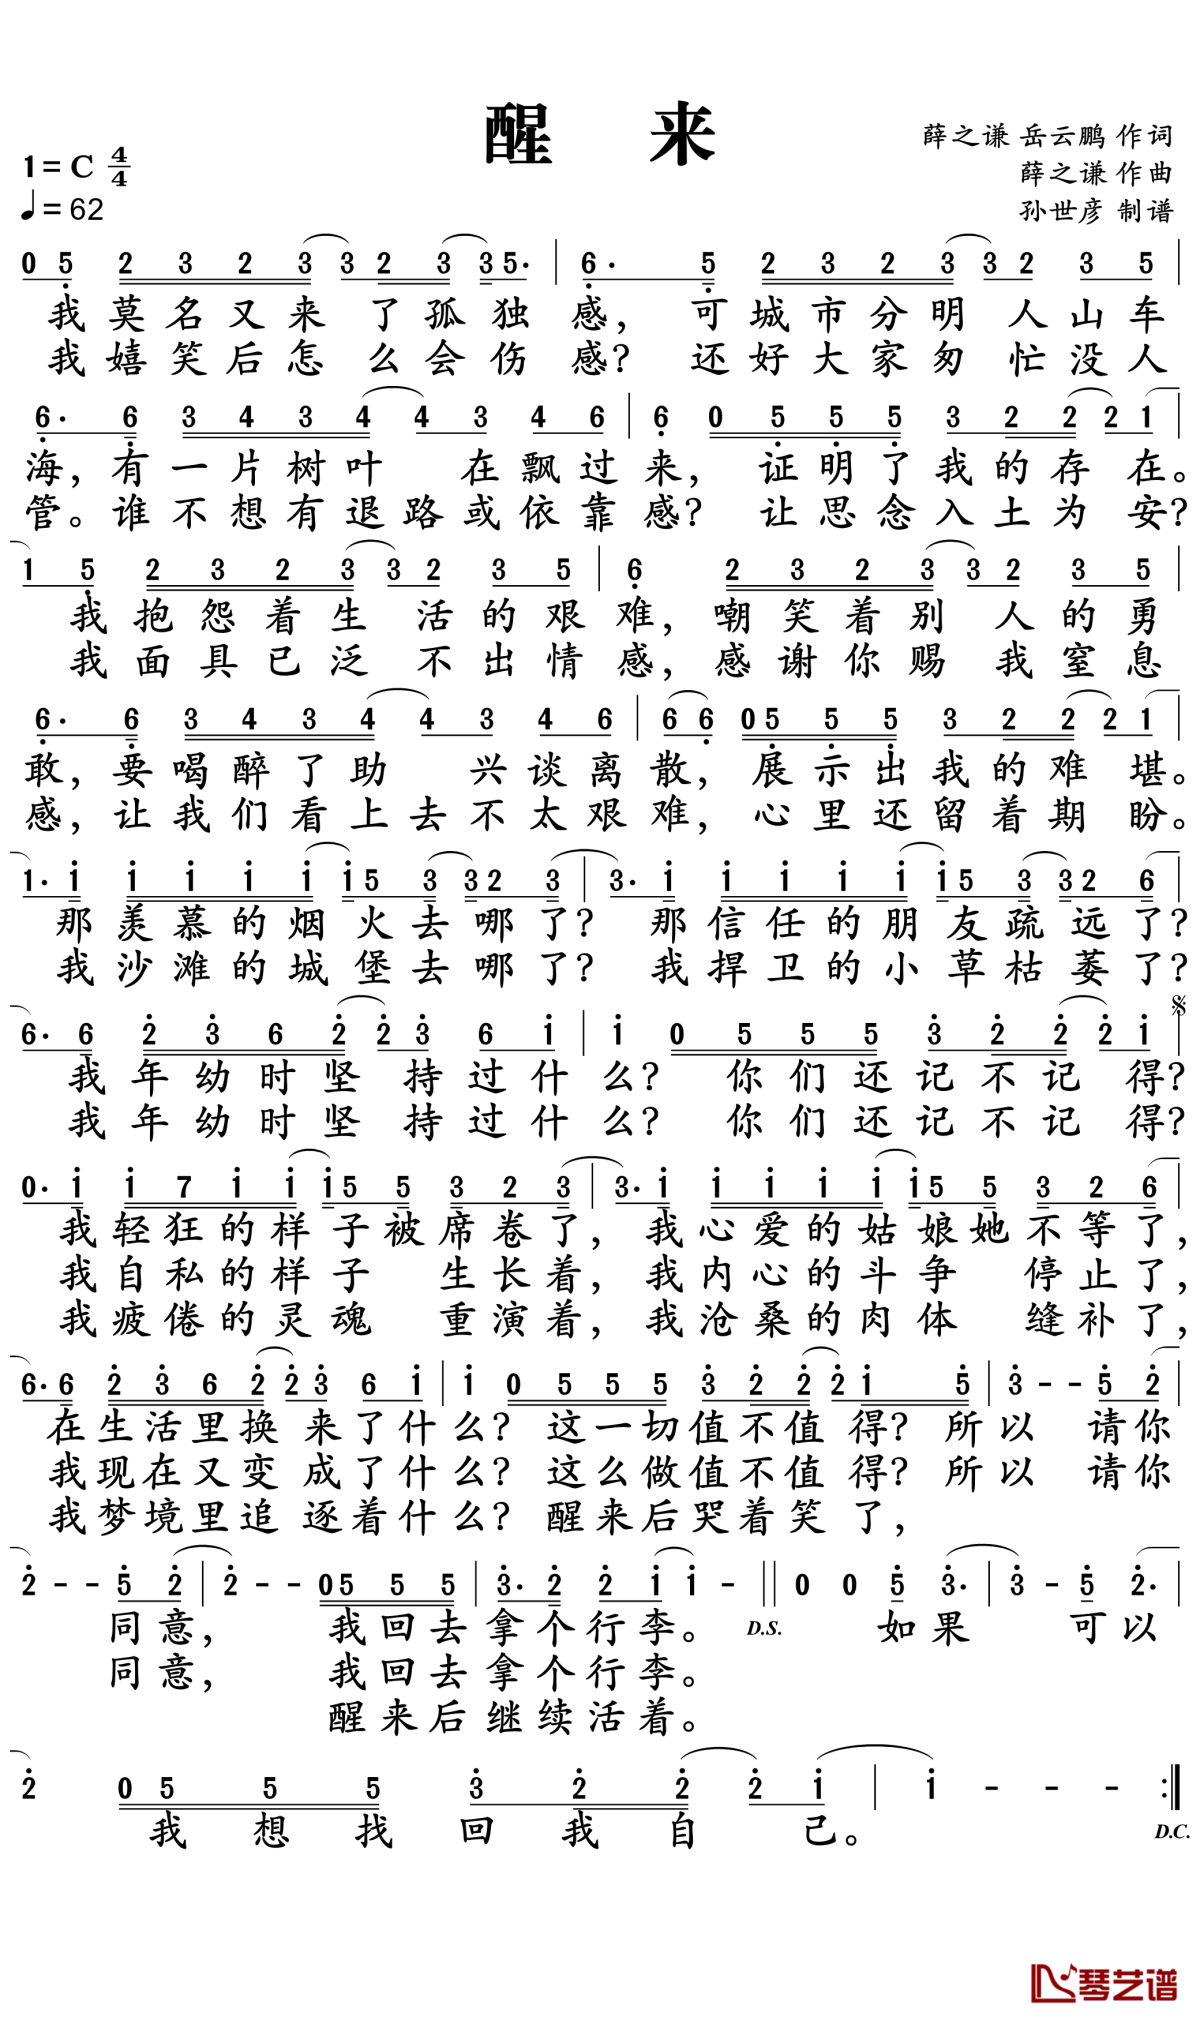 醒 来
薛之谦 岳云鹏 作词
1= C 4/4
薛之谦 作曲
♩= 62
孙世彦 制谱
0 5 2 3 2 3 3 2 3 3 5· | 6· 5 2 3 2 3 3 2 3 5 |
我莫名又来 了孤独 感， 可城市分明 人山车
我嬉笑后怎 么会伤 感？ 还好大家匆 忙没人
6· 6 3 4 3 4 4 3 4 6 | 6 0 5 5 5 3 2 2 2 1 |
海，有一片树叶 在飘过来，证明了我的存 在。
管。谁不想有退路或依靠感？让思念入土为 安？
1 5 2 3 2 3 3 2 3 5 | 6 2 3 2 3 3 2 3 5 |
我抱怨着生 活的艰难，嘲笑着别 人的勇
我面具已泛 不出情感，感谢你赐 我窒息
6· 6 3 4 3 4 4 3 4 6 | 6 6 0 5 5 5 3 2 2 2 1 |
敢，要喝醉了助 兴谈离散，展示出我的难 堪。
感，让我们看上去不太艰难，心里还留着期 盼。
1· i i i i i i 5 3 3 2 3 | 3· i i i i i i 5 3 3 2 6 |
那羡慕的烟 火去哪了？ 那信任的朋 友疏远了？
我沙滩的城 堡去哪了？ 我捍卫的小 草枯萎了？
6· 6 2 3 6 2 2 3 6 i | i 0 5 5 5 3 2 2 2 i | 𝄋
我年幼时坚 持过什么？ 你们还记不记 得？
我年幼时坚 持过什么？ 你们还记不记 得？
0· i i 7 i i i 5 5 3 2 3 | 3· i i i i i i 5 5 3 2 6 |
我轻狂的样 子被席卷了，我心爱的姑 娘她不等了，
我自私的样 子 生长着，我内心的斗 争 停止了，
我疲倦的灵 魂 重演着，我沧桑的肉 体 缝补了，
6· 6 2 3 6 2 2 3 6 i | i 0 5 5 5 3 2 2 2 i 5 | 3 - - 5 2
在生活里换 来了什么？ 这一切值不值 得？ 所以 请你
我现在又变 成了什么？ 这么做值不值 得？ 所以 请你
我梦境里追 逐着什么？ 醒来后哭着笑 了，
2 - - 5 2 | 2 - - 0 5 5 5 | 3· 2 2 i i - || 0 0 5 3· | 3 - 5 2· |
同意， 我回去拿个行李。 D.S. 如果 可以
同意， 我回去拿个行李。
醒来后继续活着。
2 0 5 5 5 3 2 2 2 i | i - - - :||
我想找回我自 己。 D.C.
琴艺谱